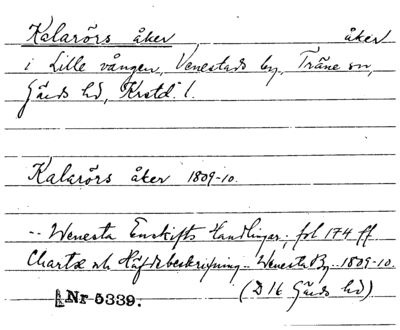 Kalarörs åker, åker
i Lille vången, Venestads by, Träne sn,
Gärds hd, Krstd. l.
Kalarörs åker 1809-10.
-- Wenesta Enskifts Handlingar, fol 174 ff.
Chartæ och Häfdebeskrifning -- Wenesta By -- 1809-10.
(D 16 Gärds hd)
Nr 5339.